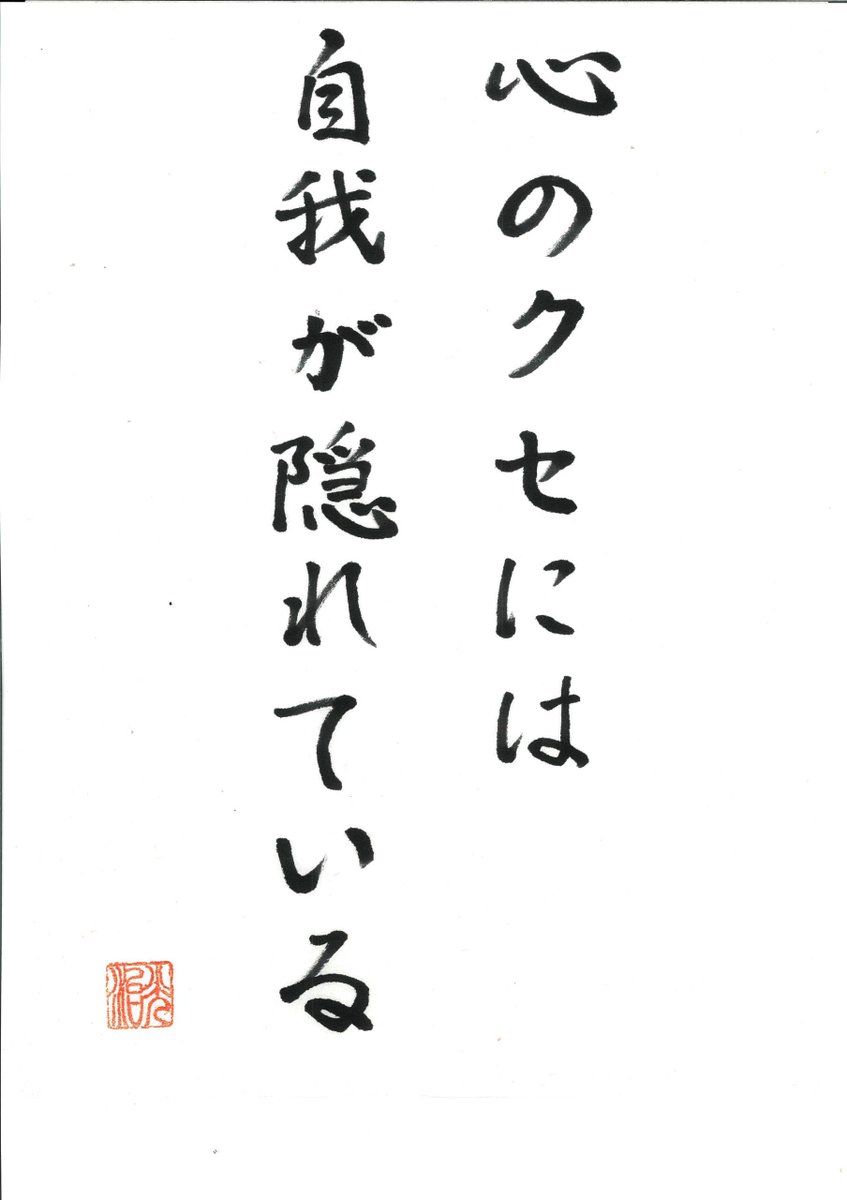 心のクセには
自我が隠れている